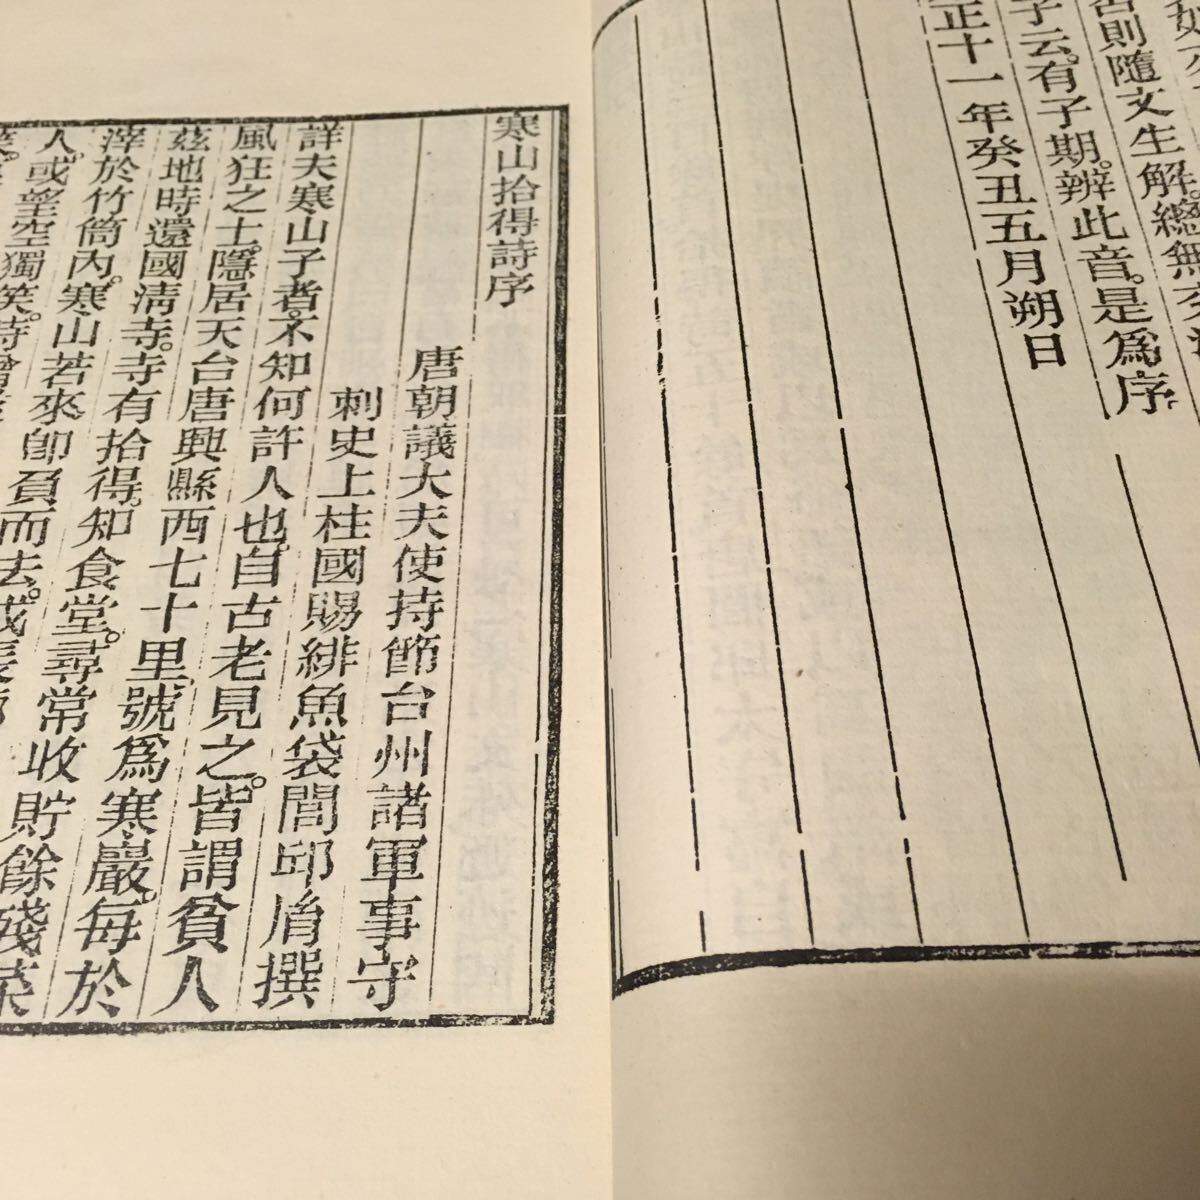 如
否則隨文生解。總無交
子云。有子期。辨此音。是爲序
正十一年癸丑五月朔日
寒山拾得詩序
唐朝議大夫使持節台州諸軍事守
刺史上柱國賜緋魚袋閭邱胤撰
詳夫寒山子者。不知何許人也。自古老見之。皆謂貧人
風狂之士。隱居天台唐興縣西七十里。號爲寒巖。每於
茲地時還國清寺。寺有拾得。知食堂。尋常收貯餘殘菜
滓於竹筒內。寒山若來。卽負而去。或長廊
人。或望空獨笑。時僧